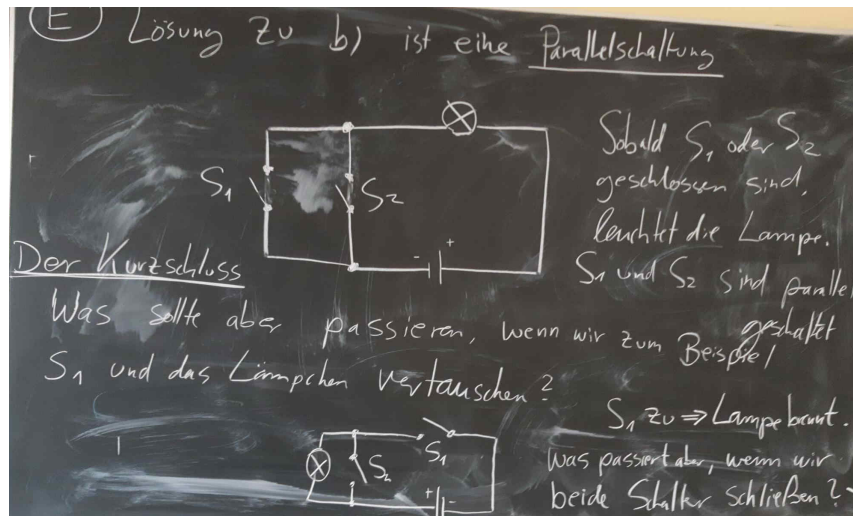 E Lösung zu b) ist eine Parallelschaltung
Sobald S1 oder S2
geschlossen sind,
leuchtet die Lampe.
S1 und S2 sind parallel
geschaltet
S1
S2
- +
Der Kurzschluss
Was sollte aber passieren, wenn wir zum Beispiel
S1 und das Lämpchen vertauschen?
S1 zu ⇒ Lampe brennt.
Was passiert aber, wenn wir
beide Schalter schließen?
S2
S1
+ -